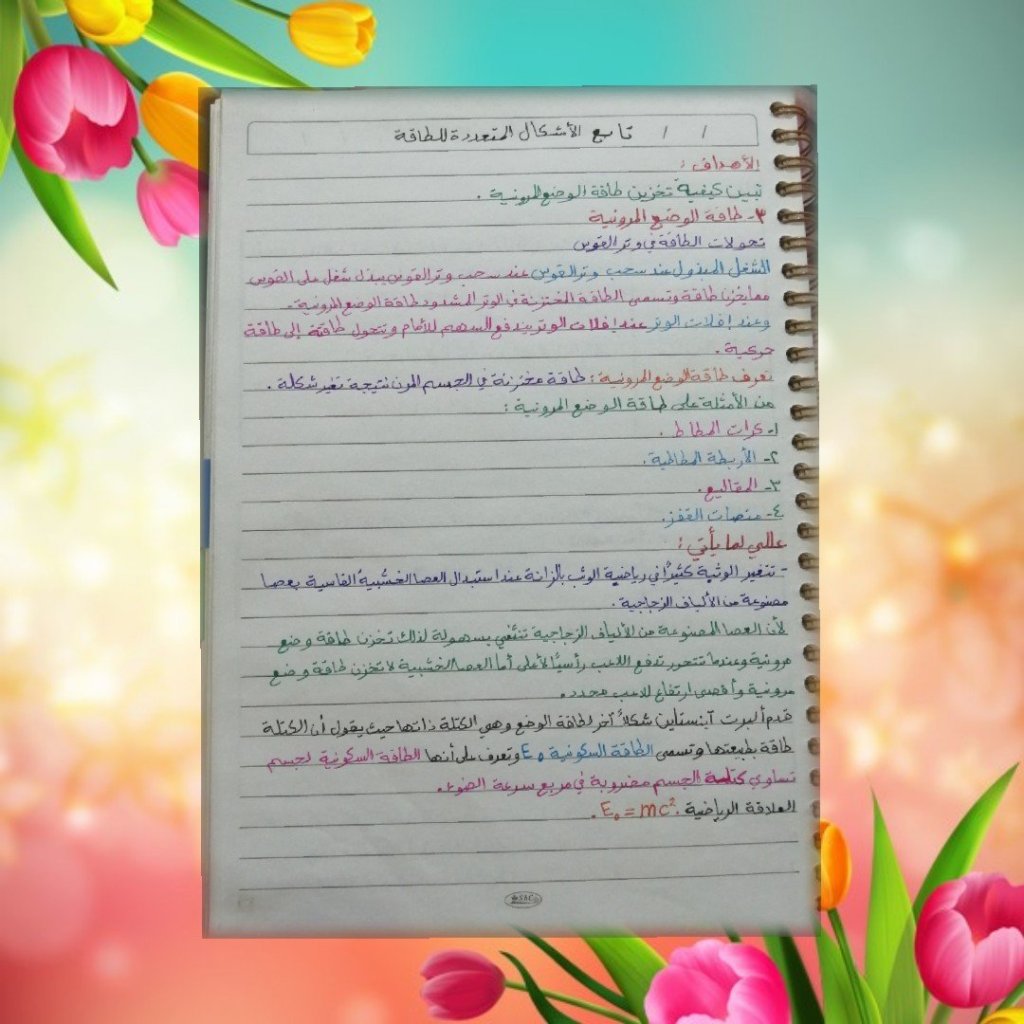 / / تابع الأشكال المتعددة للطاقة
الأهداف :
تبين كيفية تخزين طاقة الوضع المرونية .
٣- طاقة الوضع المرونية
تحولات الطاقة في وتر القوس
الشغل المبذول عند سحب وتر القوس عند سحب وتر القوس يبذل شغل على القوس
مما يخزن طاقة وتسمى الطاقة المختزنة في الوتر المشدود طاقة الوضع المرونية .
وعند إفلات الوتر عند إفلات الوتر يندفع السهم للأمام وتتحول طاقته إلى طاقة
حركية .
تعرف طاقة الوضع المرونية : طاقة مختزنة في الجسم المرن نتيجة تغير شكله .
من الأمثلة على طاقة الوضع المرونية :
١- كرات المطاط .
٢- الأربطة المطاطية .
٣- المقاليع .
٤- منصات القفز .
عللي لما يأتي :
- تتغير الوثبة كثيرًا في رياضة الوثب بالزانة عند استبدال العصا الخشبية القاسية بعصا
مصنوعة من الألياف الزجاجية .
لأن العصا المصنوعة من الألياف الزجاجية تنثني بسهولة لذلك تخزن طاقة وضع
مرونية وعندما تتحرر تدفع اللاعب رأسيًا لأعلى أما العصا الخشبية لا تخزن طاقة وضع
مرونية وأقصى ارتفاع للاعب محدد .
قدم ألبرت آينستاين شكلاً آخر لطاقة الوضع وهي الكتلة ذاتها حيث يقول أن الكتلة
طاقة بطبيعتها وتسمى الطاقة السكونية E₀ وتعرف على أنها الطاقة السكونية لجسم
تساوي كتلة الجسم مضروبة في مربع سرعة الضوء .
العلاقة الرياضية . E₀ = mc² .